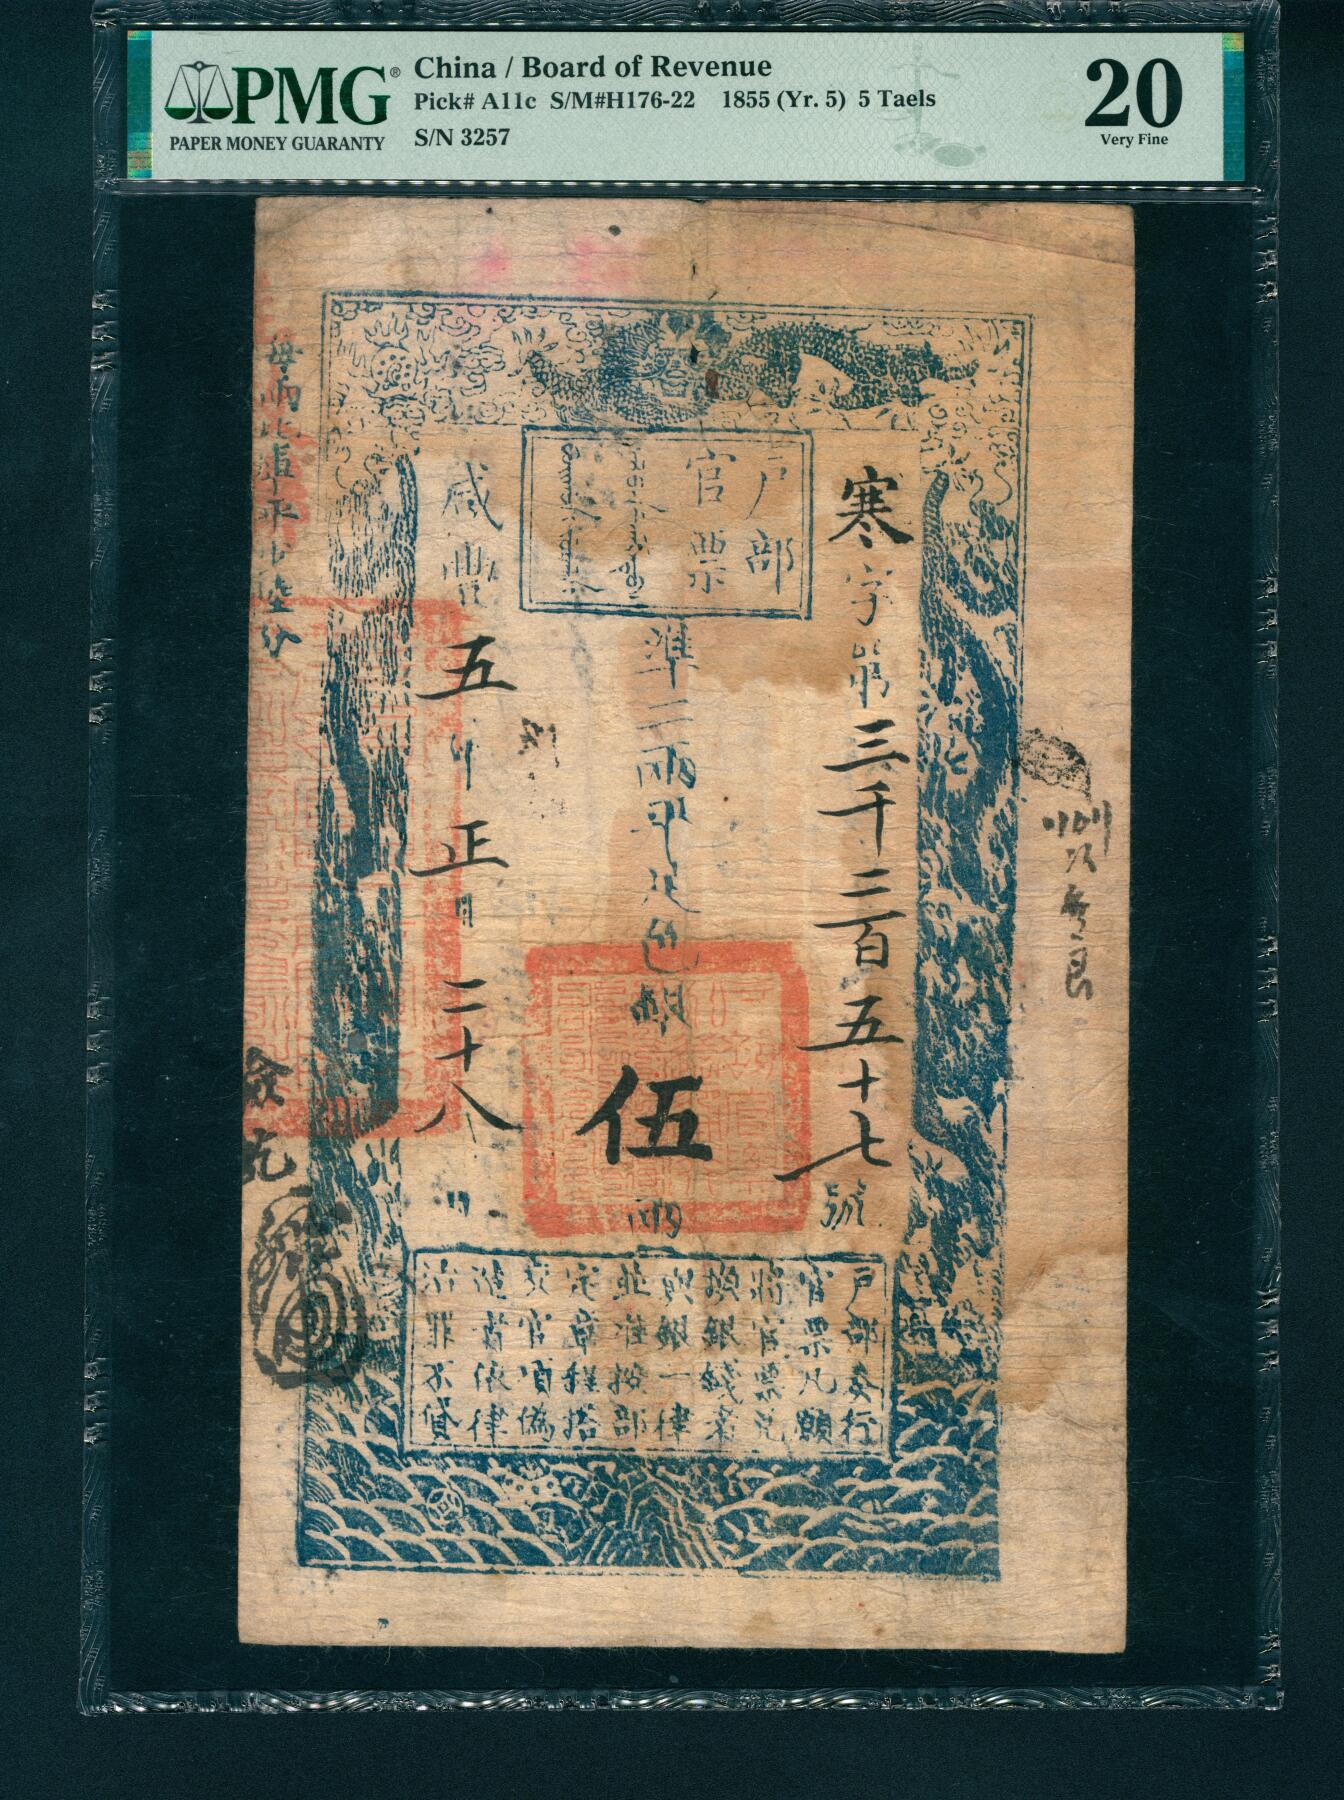 PMG®
PAPER MONEY GUARANTY
China / Board of Revenue
Pick# A11c S/M#H176-22 1855 (Yr. 5) 5 Taels
S/N 3257
20
Very Fine
戶部
官票
寒字第三千二百五十七號
準二兩平足色銀伍兩
咸豐五年正月二十八日
每兩比庫平少陸分
戶部奏行
官票凡願
將官票兌
換銀錢者
與銀一律
並准按部
定章程搭
交官項偽
造者依律
治罪不貸